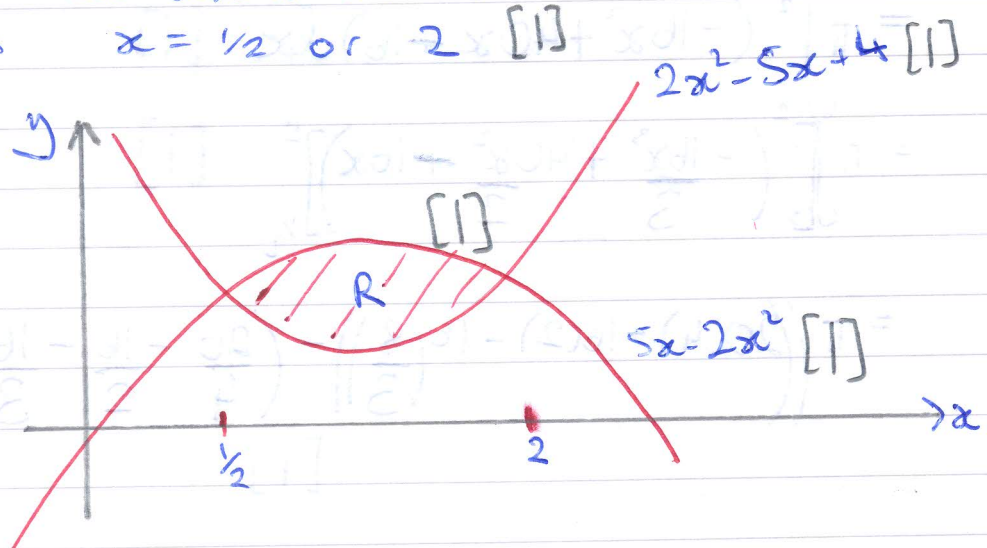 x = 1/2 or 2 [1]
2x² - 5x + 4 [1]
y
[1]
R
5x - 2x² [1]
x
1/2
2